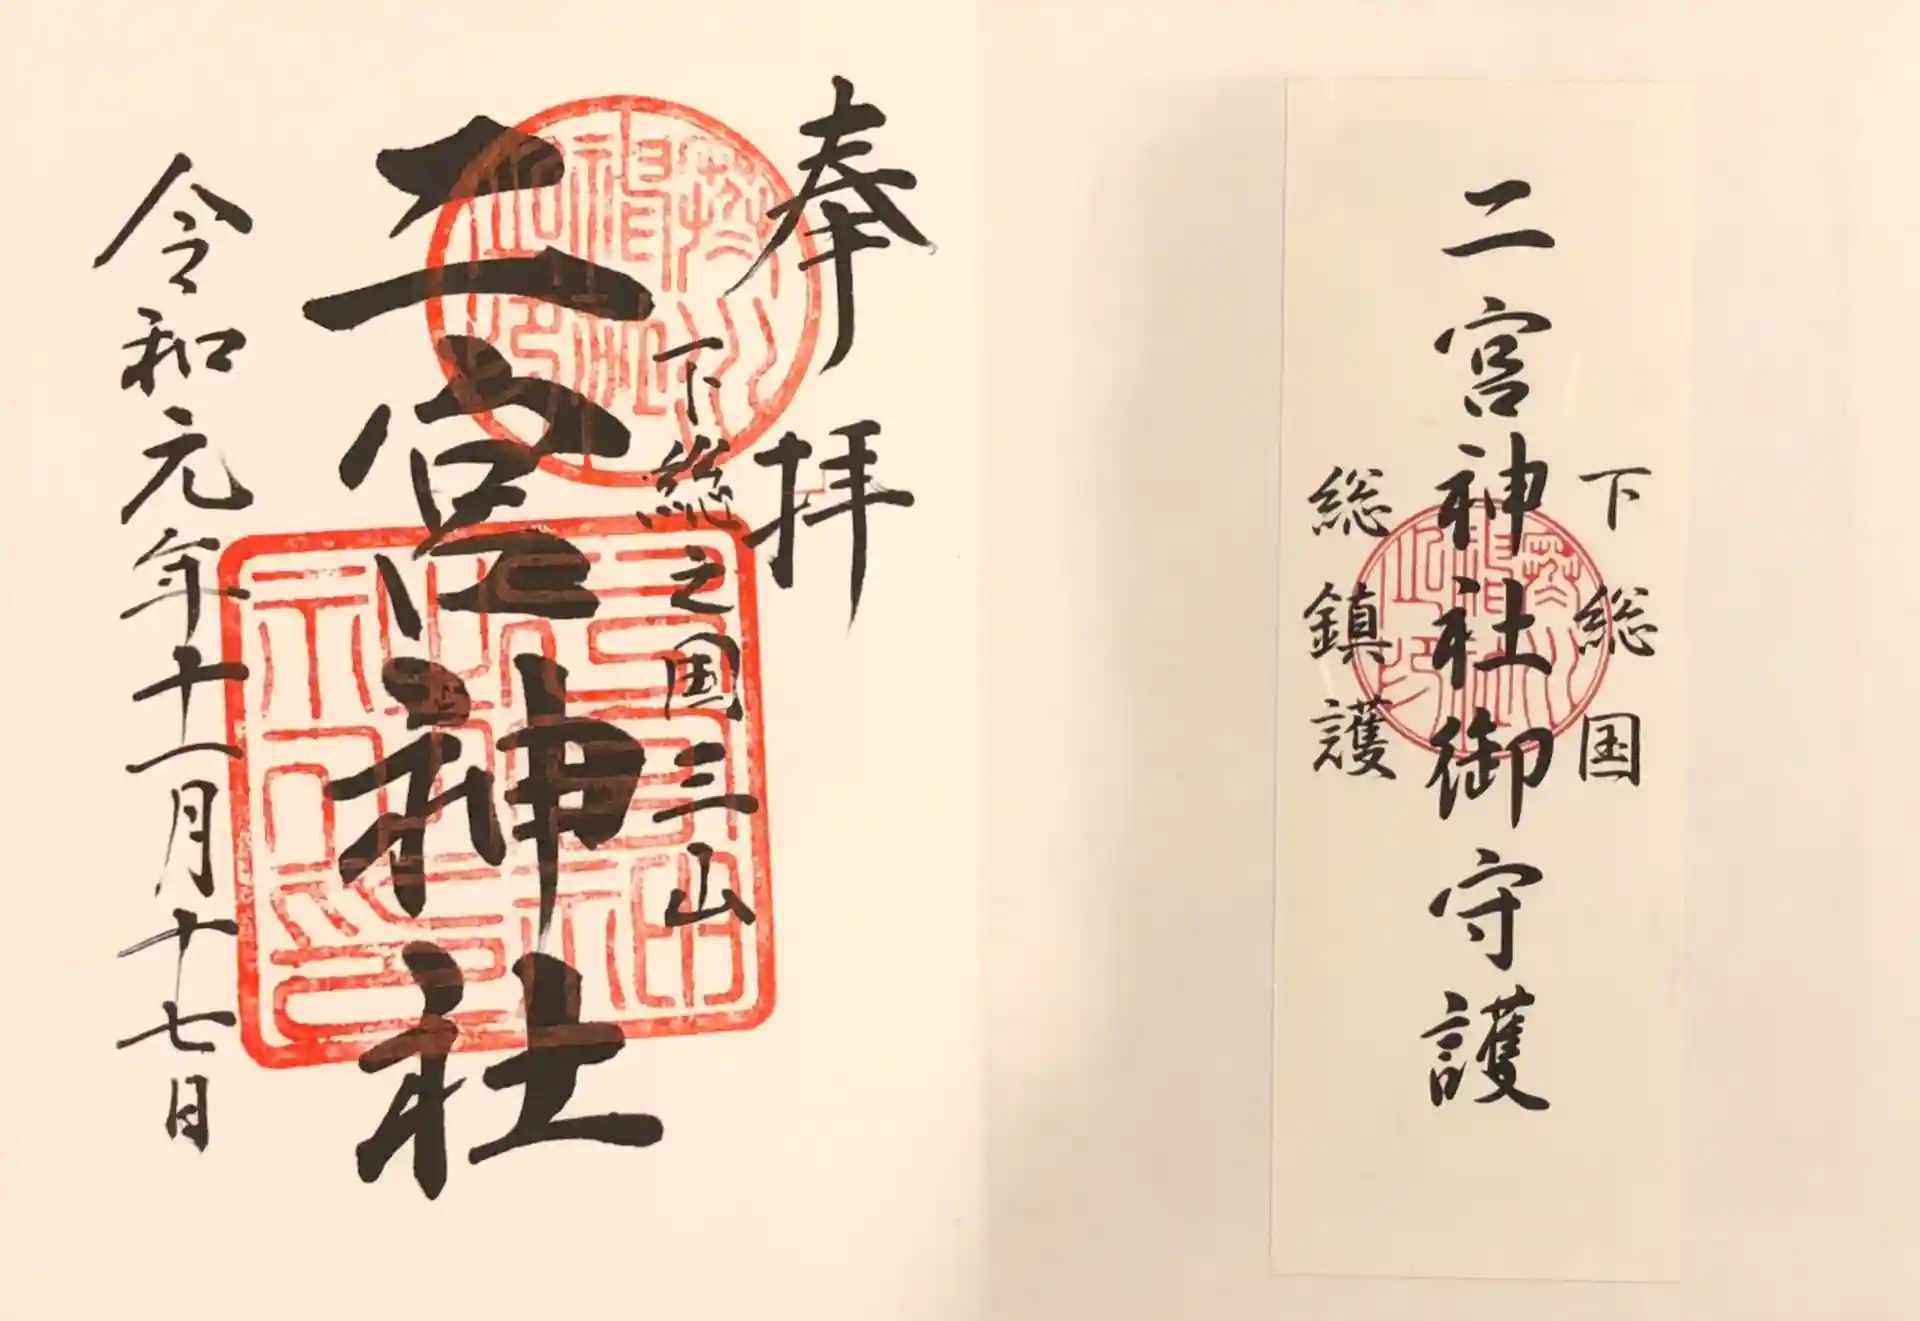 二宮神社御守護
下総国
総鎮護
奉拝
下総之国三山
二宮神社
令和元年十一月十七日